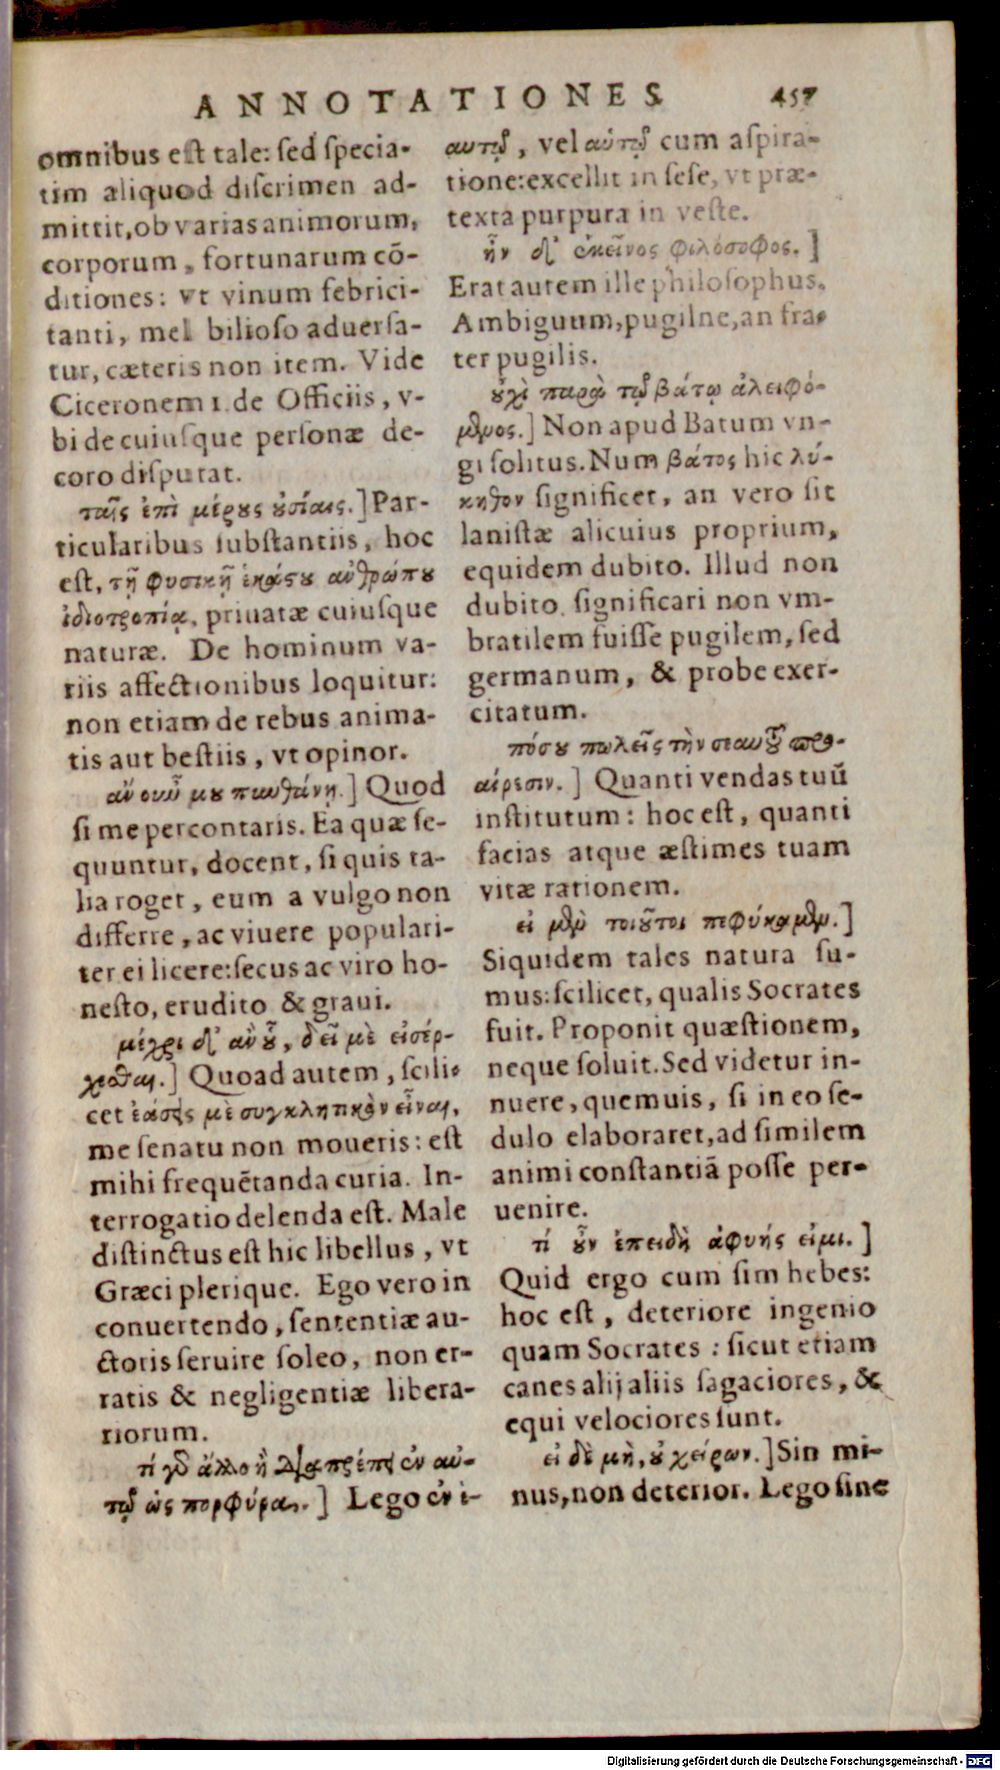 ANNOTATIONES 457
omnibus est tale: sed specia-
tim aliquod discrimen ad-
mittit, ob varias animorum,
corporum, fortunarum cō-
ditiones: vt vinum febrici-
tanti, mel bilioso aduersa-
tur, cæteris non item. Vide
Ciceronem 1. de Officiis, v-
bi de cuiusque personæ de-
coro disputat.
ταῖς ἐπὶ μέρους οὐσίαις.] Par-
ticularibus substantiis, hoc
est, τῇ φυσικῇ ἑκάστου ἀνθρώπου
ἰδιοτροπίᾳ, priuatæ cuiusque
naturæ. De hominum va-
riis affectionibus loquitur:
non etiam de rebus anima-
tis aut bestiis, vt opinor.
ἂν οὖν μου πυνθάνῃ.] Quod
si me percontaris. Ea quæ se-
quuntur, docent, si quis ta-
lia roget, eum a vulgo non
differre, ac viuere populari-
ter ei licere: secus ac viro ho-
nesto, erudito & graui.
μέχρι δ' ἂν οὗ, δεῖ μὲ εἰσέρ-
χεσθαι.] Quoad autem, scili-
cet ἐάσῃς μὲ συγκλητικὸν εἶναι,
me senatu non moueris: est
mihi frequētanda curia. In-
terrogatio delenda est. Male
distinctus est hic libellus, vt
Græci plerique. Ego vero in
conuertendo, sententiæ au-
ctoris seruire soleo, non er-
ratis & negligentiæ libera-
riorum.
τί γὰρ ἄλλο ἢ διαπρέπει ἐν αὐ-
τῷ ὡς πορφύρα.] Lego ἐν ἱ-
αυτῷ, vel αὑτῷ cum aspira-
tione: excellit in sese, vt præ-
texta purpura in veste.
ἦν δ' ἐκεῖνος φιλόσοφος.]
Erat autem ille philosophus.
Ambiguum, pugilne, an fra-
ter pugilis.
οὐχὶ παρὰ τῷ βάτῳ ἀλειφό-
μενος.] Non apud Batum vn-
gi solitus. Num βάτος hic λύ-
κηθον significet, an vero sit
lanistæ alicuius proprium,
equidem dubito. Illud non
dubito, significari non vm-
bratilem fuisse pugilem, sed
germanum, & probe exer-
citatum.
πόσου πωλεῖς τὴν σεαυτοῦ προ-
αίρεσιν.] Quanti vendas tuū
institutum: hoc est, quanti
facias atque æstimes tuam
vitæ rationem.
εἰ μὲν τοιοῦτοι πεφύκαμεν.]
Siquidem tales natura su-
mus: scilicet, qualis Socrates
fuit. Proponit quæstionem,
neque soluit. Sed videtur in-
nuere, quemuis, si in eo se-
dulo elaboraret, ad similem
animi constantiā posse per-
uenire.
τί οὖν ἐπειδὴ ἀφυής εἰμι.]
Quid ergo cum sim hebes:
hoc est, deteriore ingenio
quam Socrates: sicut etiam
canes alij aliis sagaciores, &
equi velociores sunt.
εἰ δὲ μὴ, οὐ χείρων.] Sin mi-
nus, non deterior. Lego sine
Digitalisierung gefördert durch die Deutsche Forschungsgemeinschaft - DFG